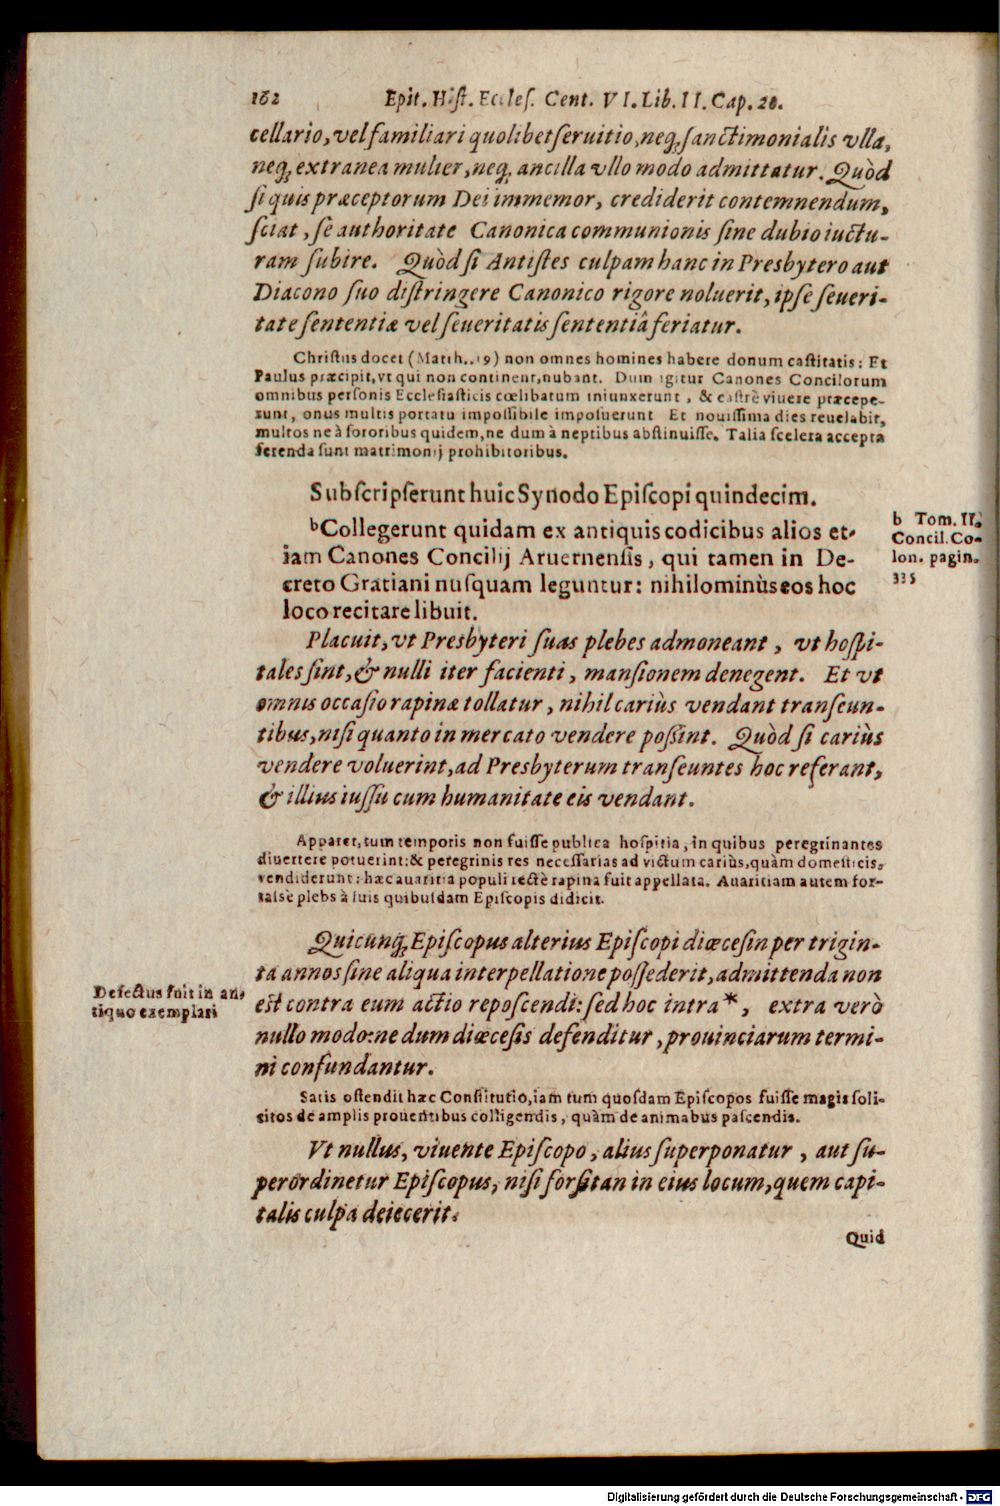 162 Epit. Hist. Eccles. Cent. VI. Lib. II. Cap. 28.
cellario, vel familiari quolibet seruitio, neq; sanctimonialis vlla,
neq; extranea mulier, neq; ancilla vllo modo admittatur. Quòd
si quis præceptorum Dei immemor, crediderit contemnendum,
sciat, se authoritate Canonica communionis sine dubio iuctu-
ram subire. Quòd si Antistes culpam hanc in Presbytero aut
Diacono suo distringere Canonico rigore noluerit, ipse seueri-
tate sententiæ vel seueritatis sententiâ feriatur.
Christus docet (Matth. 19) non omnes homines habere donum castitatis: Et
Paulus præcipit, vt qui non continent, nubant. Dum igitur Canones Conciliorum
omnibus personis Ecclesiasticis cœlibatum iniunxerunt, & castrè viuere præcepe-
runt, onus multis portatu impossibile imposuerunt Et nouissima dies reuelabit,
multos ne à sororibus quidem, ne dum à neptibus abstinuisse. Talia scelera accepta
ferenda sunt matrimonij prohibitoribus.
Subscripserunt huic Synodo Episcopi quindecim.
b Collegerunt quidam ex antiquis codicibus alios et-
iam Canones Concilij Aruernensis, qui tamen in De-
creto Gratiani nusquam leguntur: nihilominùs eos hoc
loco recitare libuit.
b Tom. II.
Concil. Co-
lon. pagin.
335
Placuit, vt Presbyteri suas plebes admoneant, vt hospi-
tales sint, & nulli iter facienti, mansionem denegent. Et vt
omnis occasio rapinæ tollatur, nihil cariùs vendant transeun-
tibus, nisi quanto in mercato vendere possint. Quòd si cariùs
vendere voluerint, ad Presbyterum transeuntes hoc referant,
& illius iussu cum humanitate eis vendant.
Apparet, tum temporis non fuisse publica hospitia, in quibus peregrinantes
diuertere potuerint: & peregrinis res necessarias ad victum cariùs, quàm domesticis,
vendiderunt: hæc auaritia populi rectè rapina fuit appellata. Auaritiam autem for-
tasse plebs à suis quibusdam Episcopis didicit.
Quicunq; Episcopus alterius Episcopi diœcesin per trigin-
ta annos sine aliqua interpellatione possederit, admittenda non
est contra eum actio reposcendi: sed hoc intra*, extra verò
nullo modo: ne dum diœcesis defenditur, prouinciarum termi-
ni confundantur.
Defectus fuit in an-
tiquo exemplari
Satis ostendit hæc Constitutio, iam tum quosdam Episcopos fuisse magis soli-
citos de amplis prouentibus colligendis, quàm de animabus pascendis.
Vt nullus, viuente Episcopo, alius superponatur, aut su-
perordinetur Episcopus, nisi forsitan in eius locum, quem capi-
talis culpa deiecerit.
Quid
Digitalisierung gefördert durch die Deutsche Forschungsgemeinschaft - DFG